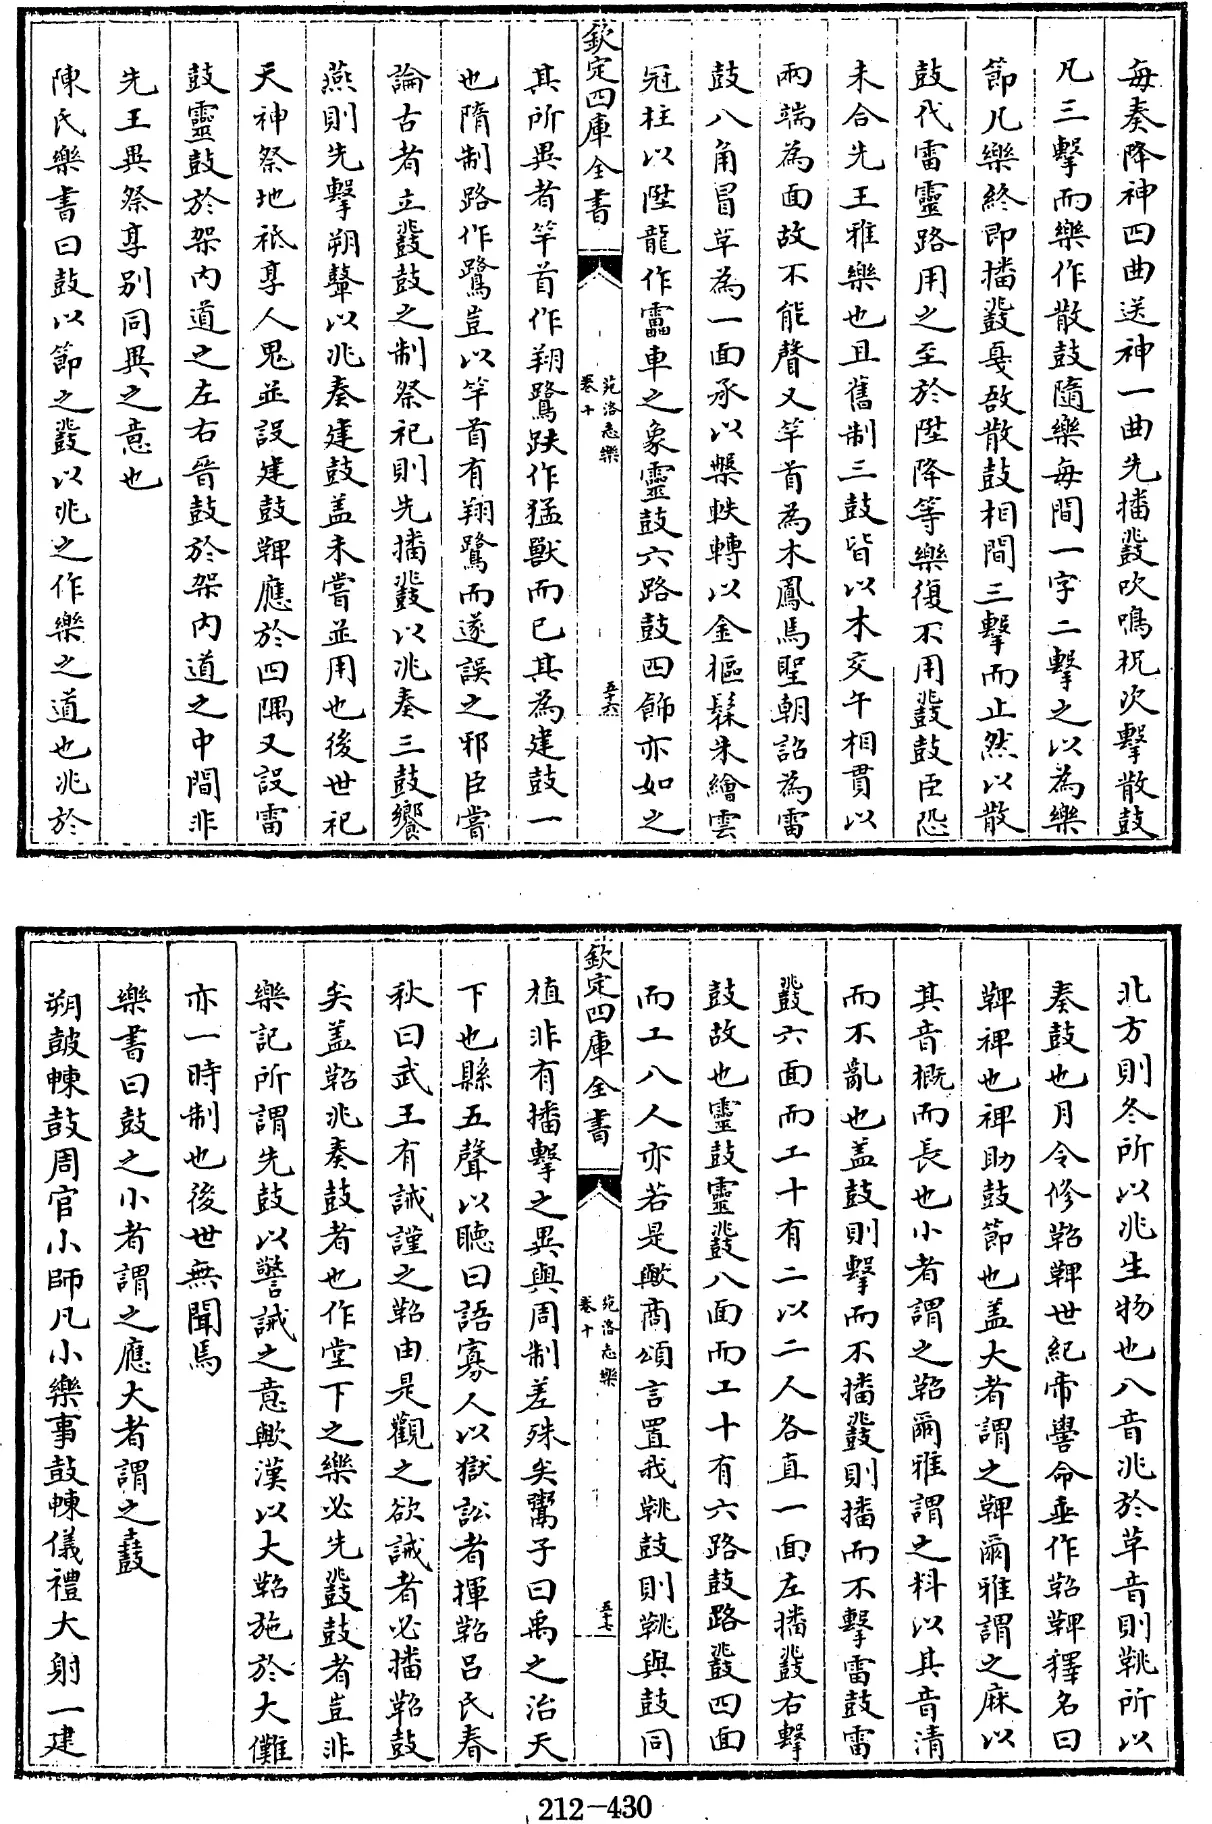 每奏降神四曲送神一曲先播鼗吹鳴柷次擊散鼓
凡三擊而樂作散鼓隨樂每間一字二擊之以為樂
節凡樂終即播鼗戛敔散鼓相間三擊而止然以散
鼓代雷靈路用之至於陞降等樂復不用鼗鼓臣恐
未合先王雅樂也且舊制三鼓皆以木交午相貫以
兩端為面故不能聲又竿首為木鳳焉聖朝詔為雷
鼓八角冒革為一面承以槃軼轉以金樞髹朱繪雲
冠柱以陞龍作靁車之象靈鼓六路鼓四飾亦如之
欽定四庫全書
苑洛志樂
卷十
五十六
其所異者竿首作翔鷺趺作猛獸而已其為建鼓一
也隋制路作鷺豈以竿首有翔鷺而遂誤之邪臣嘗
論古者立鼗鼓之制祭祀則先播鼗以兆奏三鼓饗
燕則先擊朔鼙以兆奏建鼓盖未嘗並用也後世祀
天神祭地祇享人鬼並設建鼓鞞應於四隅又設雷
鼓靈鼓於架內道之左右晉鼓於架內道之中間非
先王異祭享别同異之意也
陳氏樂書曰鼓以節之鼗以兆之作樂之道也兆於
北方則冬所以兆生物也八音兆於革音則鞉所以
奏鼓也月令修鞀鞞世紀帝嚳命垂作鞀鞞釋名曰
鞞裨也裨助鼓節也盖大者謂之鞞爾雅謂之麻以
其音概而長也小者謂之鞀爾雅謂之料以其音清
而不亂也盖鼓則擊而不播鼗則播而不擊雷鼓雷
鼗六面而工十有二以二人各直一面左播鼗右擊
鼓故也靈鼓靈鼗八面而工十有六路鼓路鼗四面
而工八人亦若是歟商頌言置我鞉鼓則鞉與鼓同
欽定四庫全書
苑洛志樂
卷十
五十七
植非有播擊之異與周制差殊矣鬻子曰禹之治天
下也縣五聲以聽曰語寡人以獄訟者揮鞀呂氏春
秋曰武王有誡謹之鞀由是觀之欲誡者必播鞀鼓
矣盖鞀兆奏鼓者也作堂下之樂必先鼗鼓者豈非
樂記所謂先鼓以警誡之意歟漢以大鞀施於大儺
亦一時制也後世無聞焉
樂書曰鼓之小者謂之應大者謂之鼖
朔鼓㯥鼓周官小師凡小樂事鼓㯥儀禮大射一建
212-430